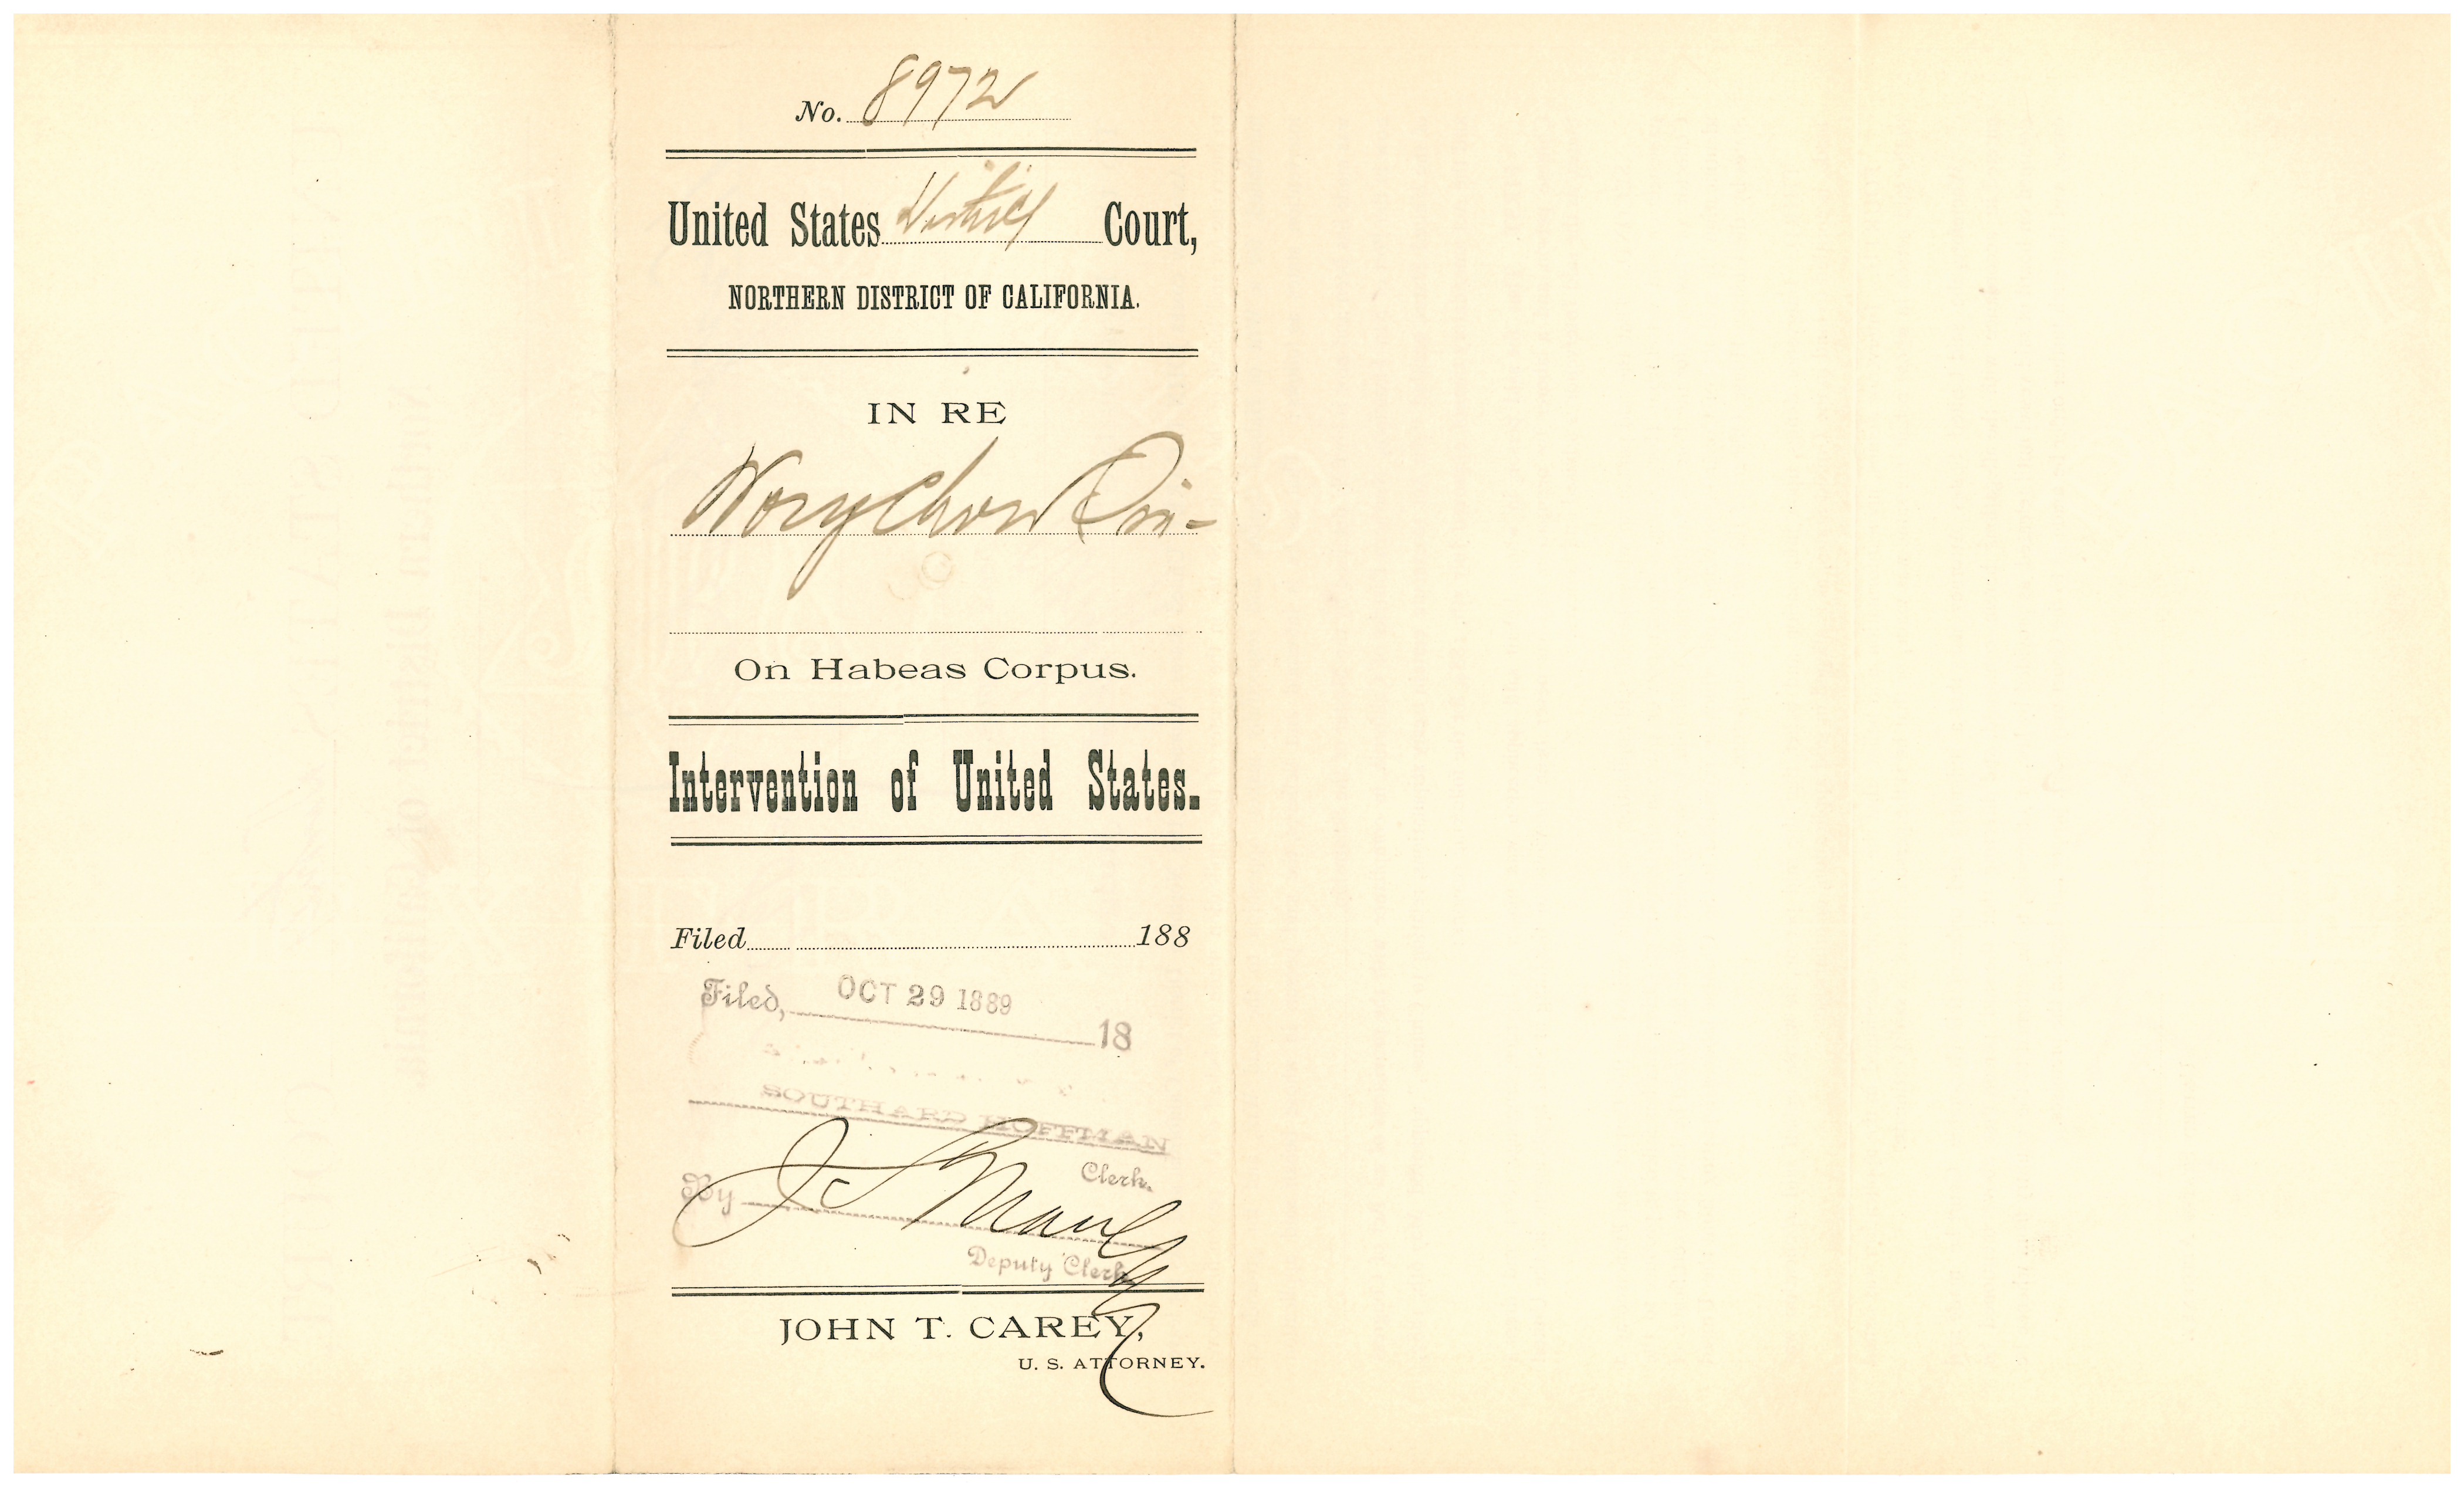 No. 8972
United States District Court,
NORTHERN DISTRICT OF CALIFORNIA.
IN RE
Wong Chow
On Habeas Corpus.
Intervention of United States.
Filed 188
Filed, OCT 29 1889 18
SOUTHARD HOFFMAN
Clerk.
By
Deputy Clerk
JOHN T. CAREY,
U. S. ATTORNEY.